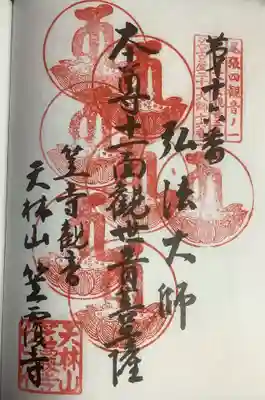 尾張四観音ノ一
第十六番
弘法大師
本尊十一面観世音菩薩
笠寺観音
天林山 笠覆寺
天林山